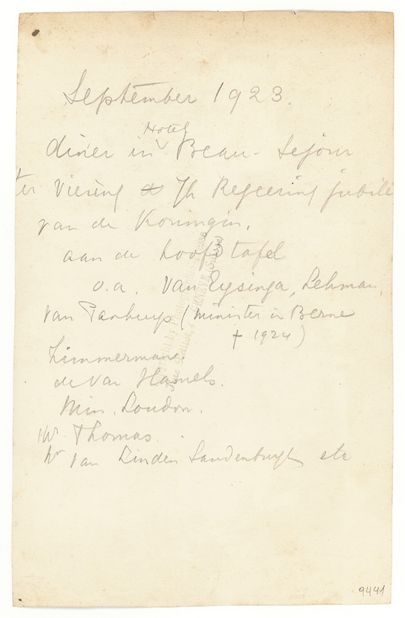 September 1923.
diner in Hotel Beau-Sejour
ter Viering Regeering jubile
van de Koningin,
aan de hoofdtafel
o.a. Van Eysinga, Lehman,
van Panhuys (minister in Berne
† 1924)
Zimmerman
de van Hamels.
Min. Loudon.
Mr Thomas.
van Linden Sandenburg etc
9441